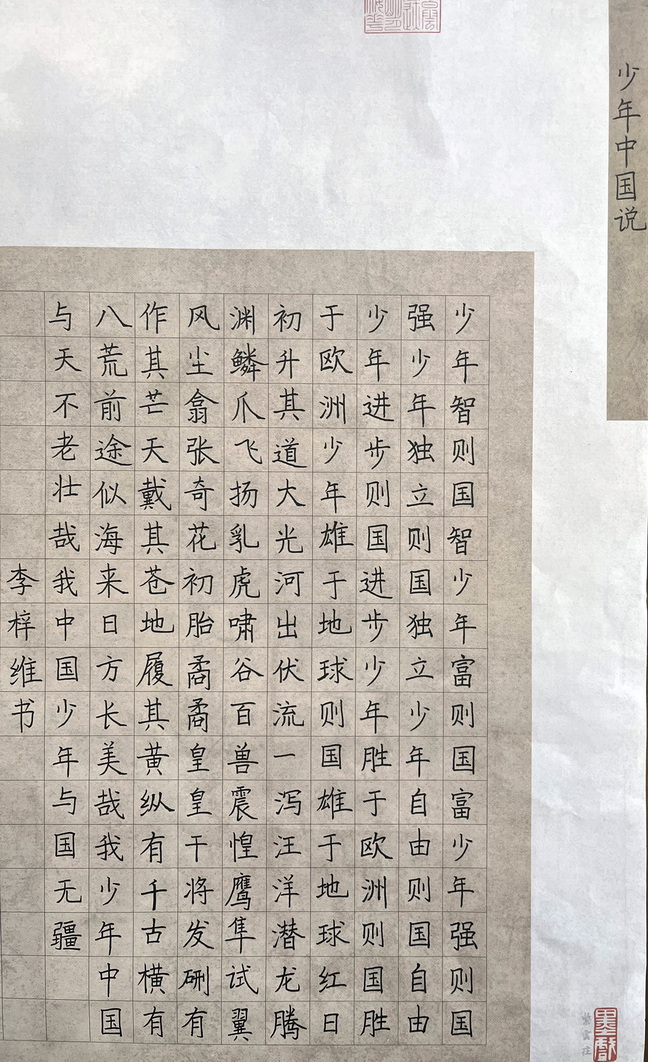 少年中国说
少年智则国智少年富则国富少年强则国
强少年独立则国独立少年自由则国自由
少年进步则国进步少年胜于欧洲则国胜
于欧洲少年雄于地球则国雄于地球红日
初升其道大光河出伏流一泻汪洋潜龙腾
渊鳞爪飞扬乳虎啸谷百兽震惶鹰隼试翼
风尘翕张奇花初胎矞矞皇皇干将发硎有
作其芒天戴其苍地履其黄纵有千古横有
八荒前途似海来日方长美哉我少年中国
与天不老壮哉我中国少年与国无疆
李梓维书